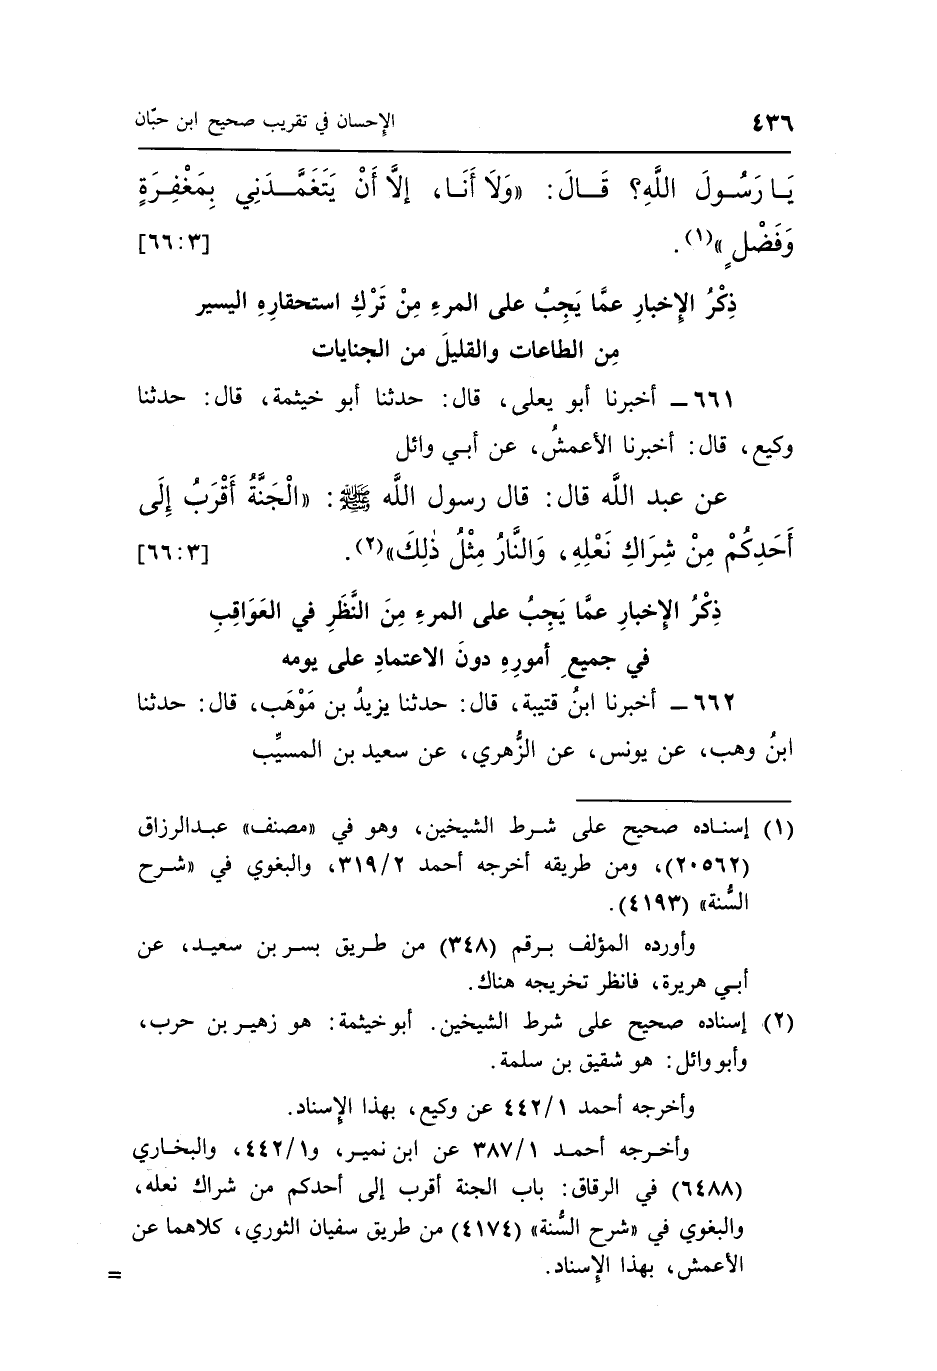 ٤٣٦ الإحسان في تقريب صحيح ابن حبّان
يَا رَسُولَ اللَّهِ؟ قَالَ: «وَلَا أَنَا، إِلَّا أَنْ يَتَغَمَّدَنِي بِمَغْفِرَةٍ
وَفَضْلٍ»(١). [٦٦:٣]
ذِكْرُ الإِخبارِ عمَّا يَجِبُ على المرءِ مِنْ تَرْكِ استحقارِهِ اليسير
مِن الطاعات والقليلَ من الجنايات
٦٦١ ـ أخبرنا أبو يعلى، قال: حدثنا أبو خيثمة، قال: حدثنا
وكيع، قال: أخبرنا الأعمشُ، عن أبي وائل
عن عبد اللَّه قال: قال رسول اللَّه ﷺ: «الْجَنَّةُ أَقْرَبُ إِلَى
أَحَدِكُمْ مِنْ شِرَاكِ نَعْلِهِ، وَالنَّارُ مِثْلُ ذٰلِكَ»(٢). [٦٦:٣]
ذِكْرُ الإِخبارِ عمَّا يَجِبُ على المرءِ مِنَ النَّظَرِ في العَوَاقِبِ
في جميعِ أمورِهِ دونَ الاعتمادِ على يومه
٦٦٢ ـ أخبرنا ابنُ قتيبة، قال: حدثنا يزيدُ بن مَوْهَب، قال: حدثنا
ابنُ وهب، عن يونس، عن الزُّهري، عن سعيد بن المسيِّب
(١) إسناده صحيح على شرط الشيخين، وهو في «مصنف» عبدالرزاق
(٢٠٥٦٢)، ومن طريقه أخرجه أحمد ٣١٩/٢، والبغوي في «شرح
السُّنة» (٤١٩٣).
وأورده المؤلف برقم (٣٤٨) من طريق بسر بن سعيد، عن
أبي هريرة، فانظر تخريجه هناك.
(٢) إسناده صحيح على شرط الشيخين. أبو خيثمة: هو زهير بن حرب،
وأبو وائل: هو شقيق بن سلمة.
وأخرجه أحمد ٤٤٢/١ عن وكيع، بهذا الإِسناد.
وأخرجه أحمد ٣٨٧/١ عن ابن نمير، و٤٤٢/١، والبخاري
(٦٤٨٨) في الرقاق: باب الجنة أقرب إلى أحدكم من شراك نعله،
والبغوي في «شرح السُّنة» (٤١٧٤) من طريق سفيان الثوري، كلاهما عن
الأعمش، بهذا الإِسناد. =